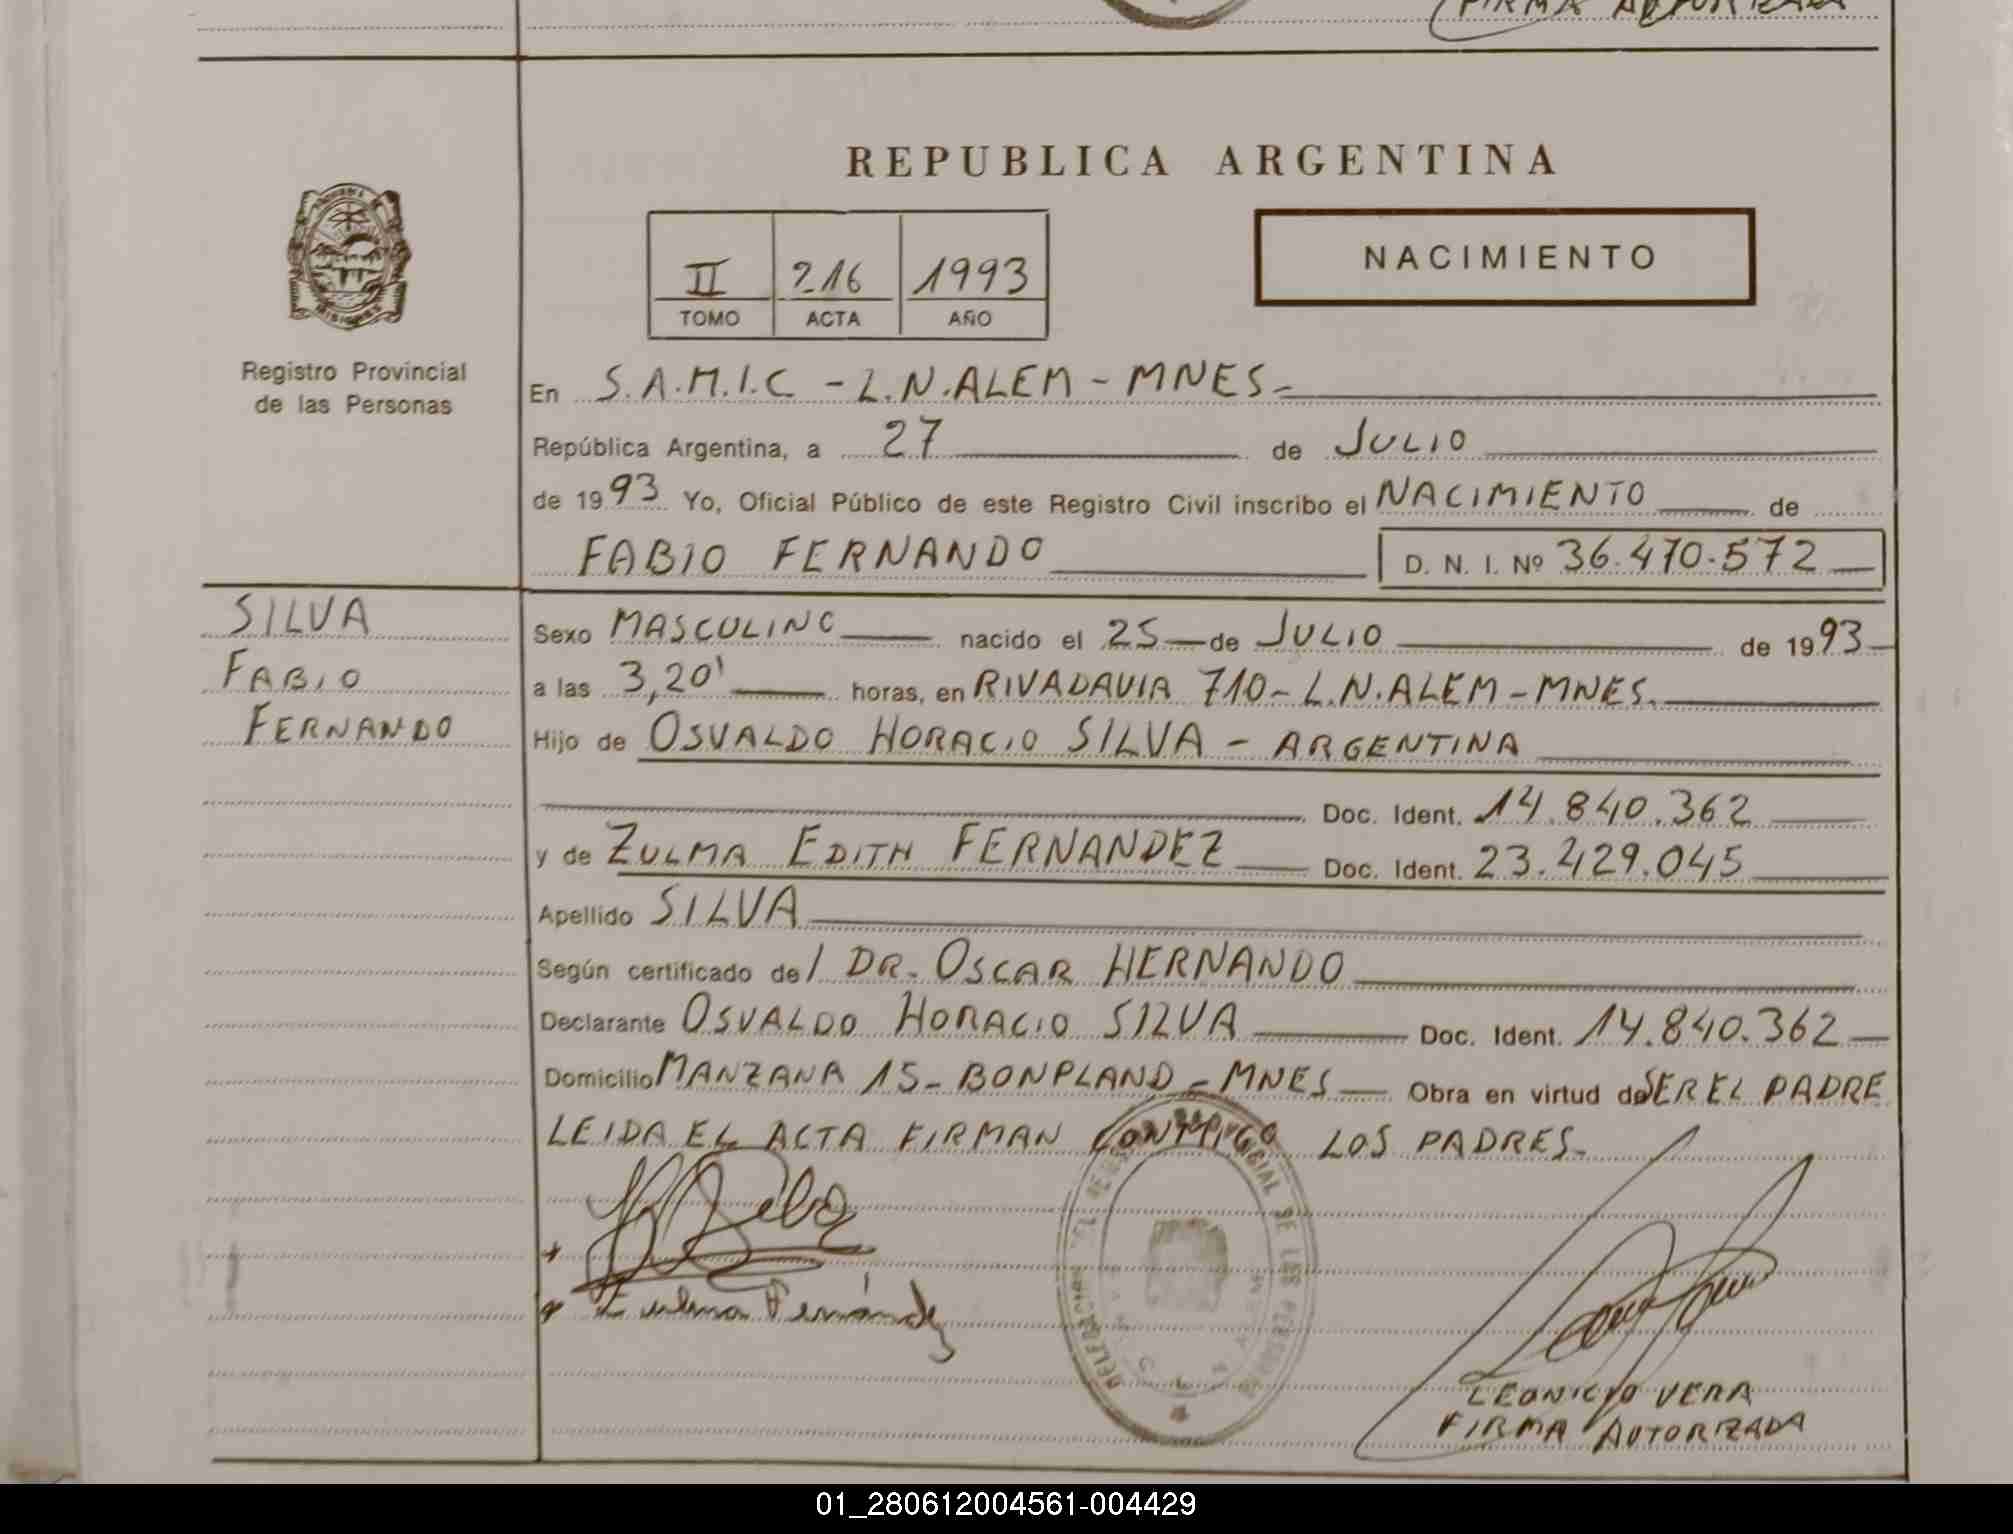 FIRMA AUTORIZADA
REPUBLICA ARGENTINA
NACIMIENTO
II 216 1993
TOMO ACTA AÑO
MISIONES
Registro Provincial
de las Personas
En S.A.M.I.C - L.N.ALEM - MNES-
República Argentina, a 27 de JULIO
de 1993 Yo, Oficial Público de este Registro Civil inscribo el NACIMIENTO de
FABIO FERNANDO D. N. I. Nº 36.470.572
SILVA
FABIO
FERNANDO
Sexo MASCULINO nacido el 25 de JULIO de 1993
a las 3,20' horas, en RIVADAVIA 710- L.N.ALEM-MNES.
Hijo de OSVALDO HORACIO SILVA - ARGENTINA
Doc. Ident. 14.840.362
y de ZULMA EDITH FERNANDEZ Doc. Ident. 23.429.045
Apellido SILVA
Según certificado del DR. OSCAR HERNANDO
Declarante OSVALDO HORACIO SILVA Doc. Ident. 14.840.362
Domicilio MANZANA 15- BONPLAND - MNES Obra en virtud de SER EL PADRE
LEIDA EL ACTA FIRMAN CONMIGO LOS PADRES-
Zulma Fernández
DELEGACION DEL REG. PROVINCIAL DE LAS PERSONAS
LEONICIO VERA
FIRMA AUTORIZADA
01_280612004561-004429